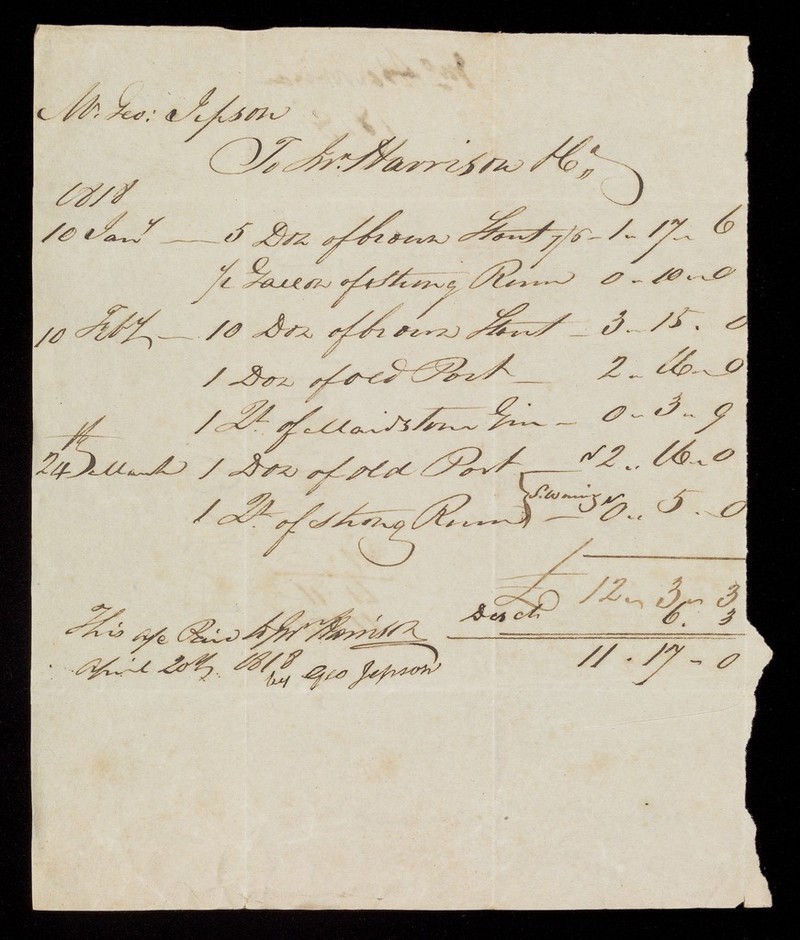 Mr. Geo: Jepson
To Jnr. Harrison
1818
10 Jany — 5 Doz of brown Stout 7/6 - 1 " 17 " 6
1/2 Gallon of strong Rum 0 " 10 " 0
10 Feby — 10 Doz of brown Stout - 3 " 15 " 0
1 Doz of old Port — 2 " 16 " 0
1 Qt. of Maidstone Gin — 0 " 3 " 9
24th March 1 Doz of old Port 2 " 16 " 0
1 Qt. of strong Rum — 0 " 5 " 0
£ 12 " 3 " 3
Disct 6 " 3
11 " 17 " 0
This a/c Paid to Jnr Harrison
April 20th 1818
by Geo Jepson